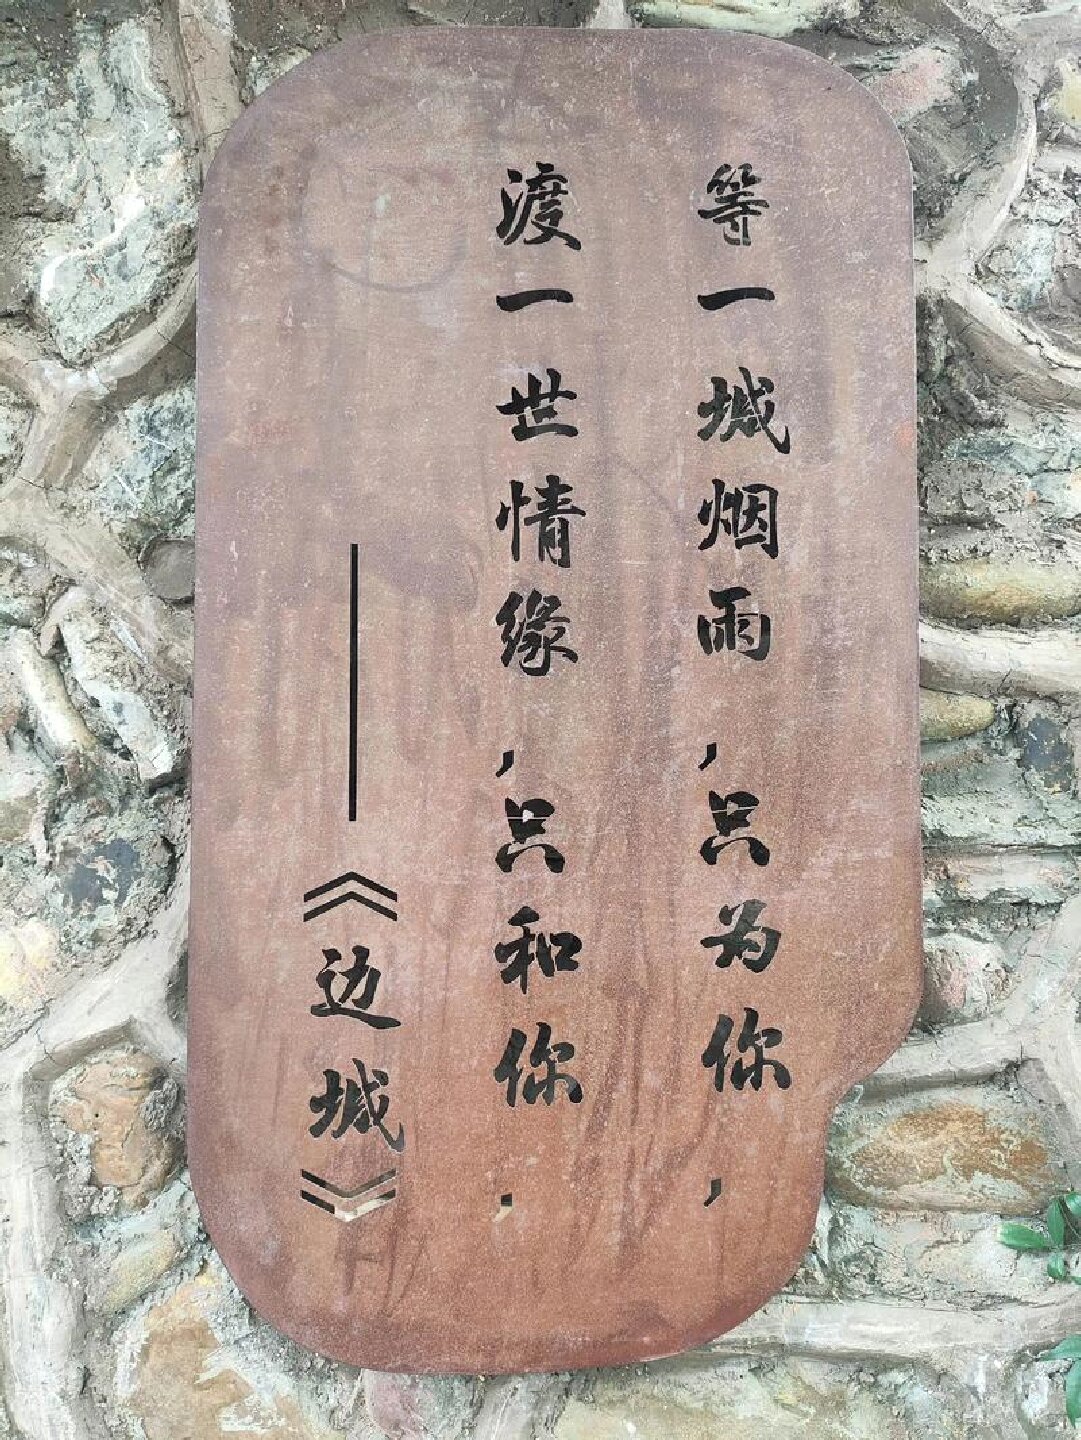 等一城烟雨,只为你,
渡一世情缘,只和你.
——《边城》